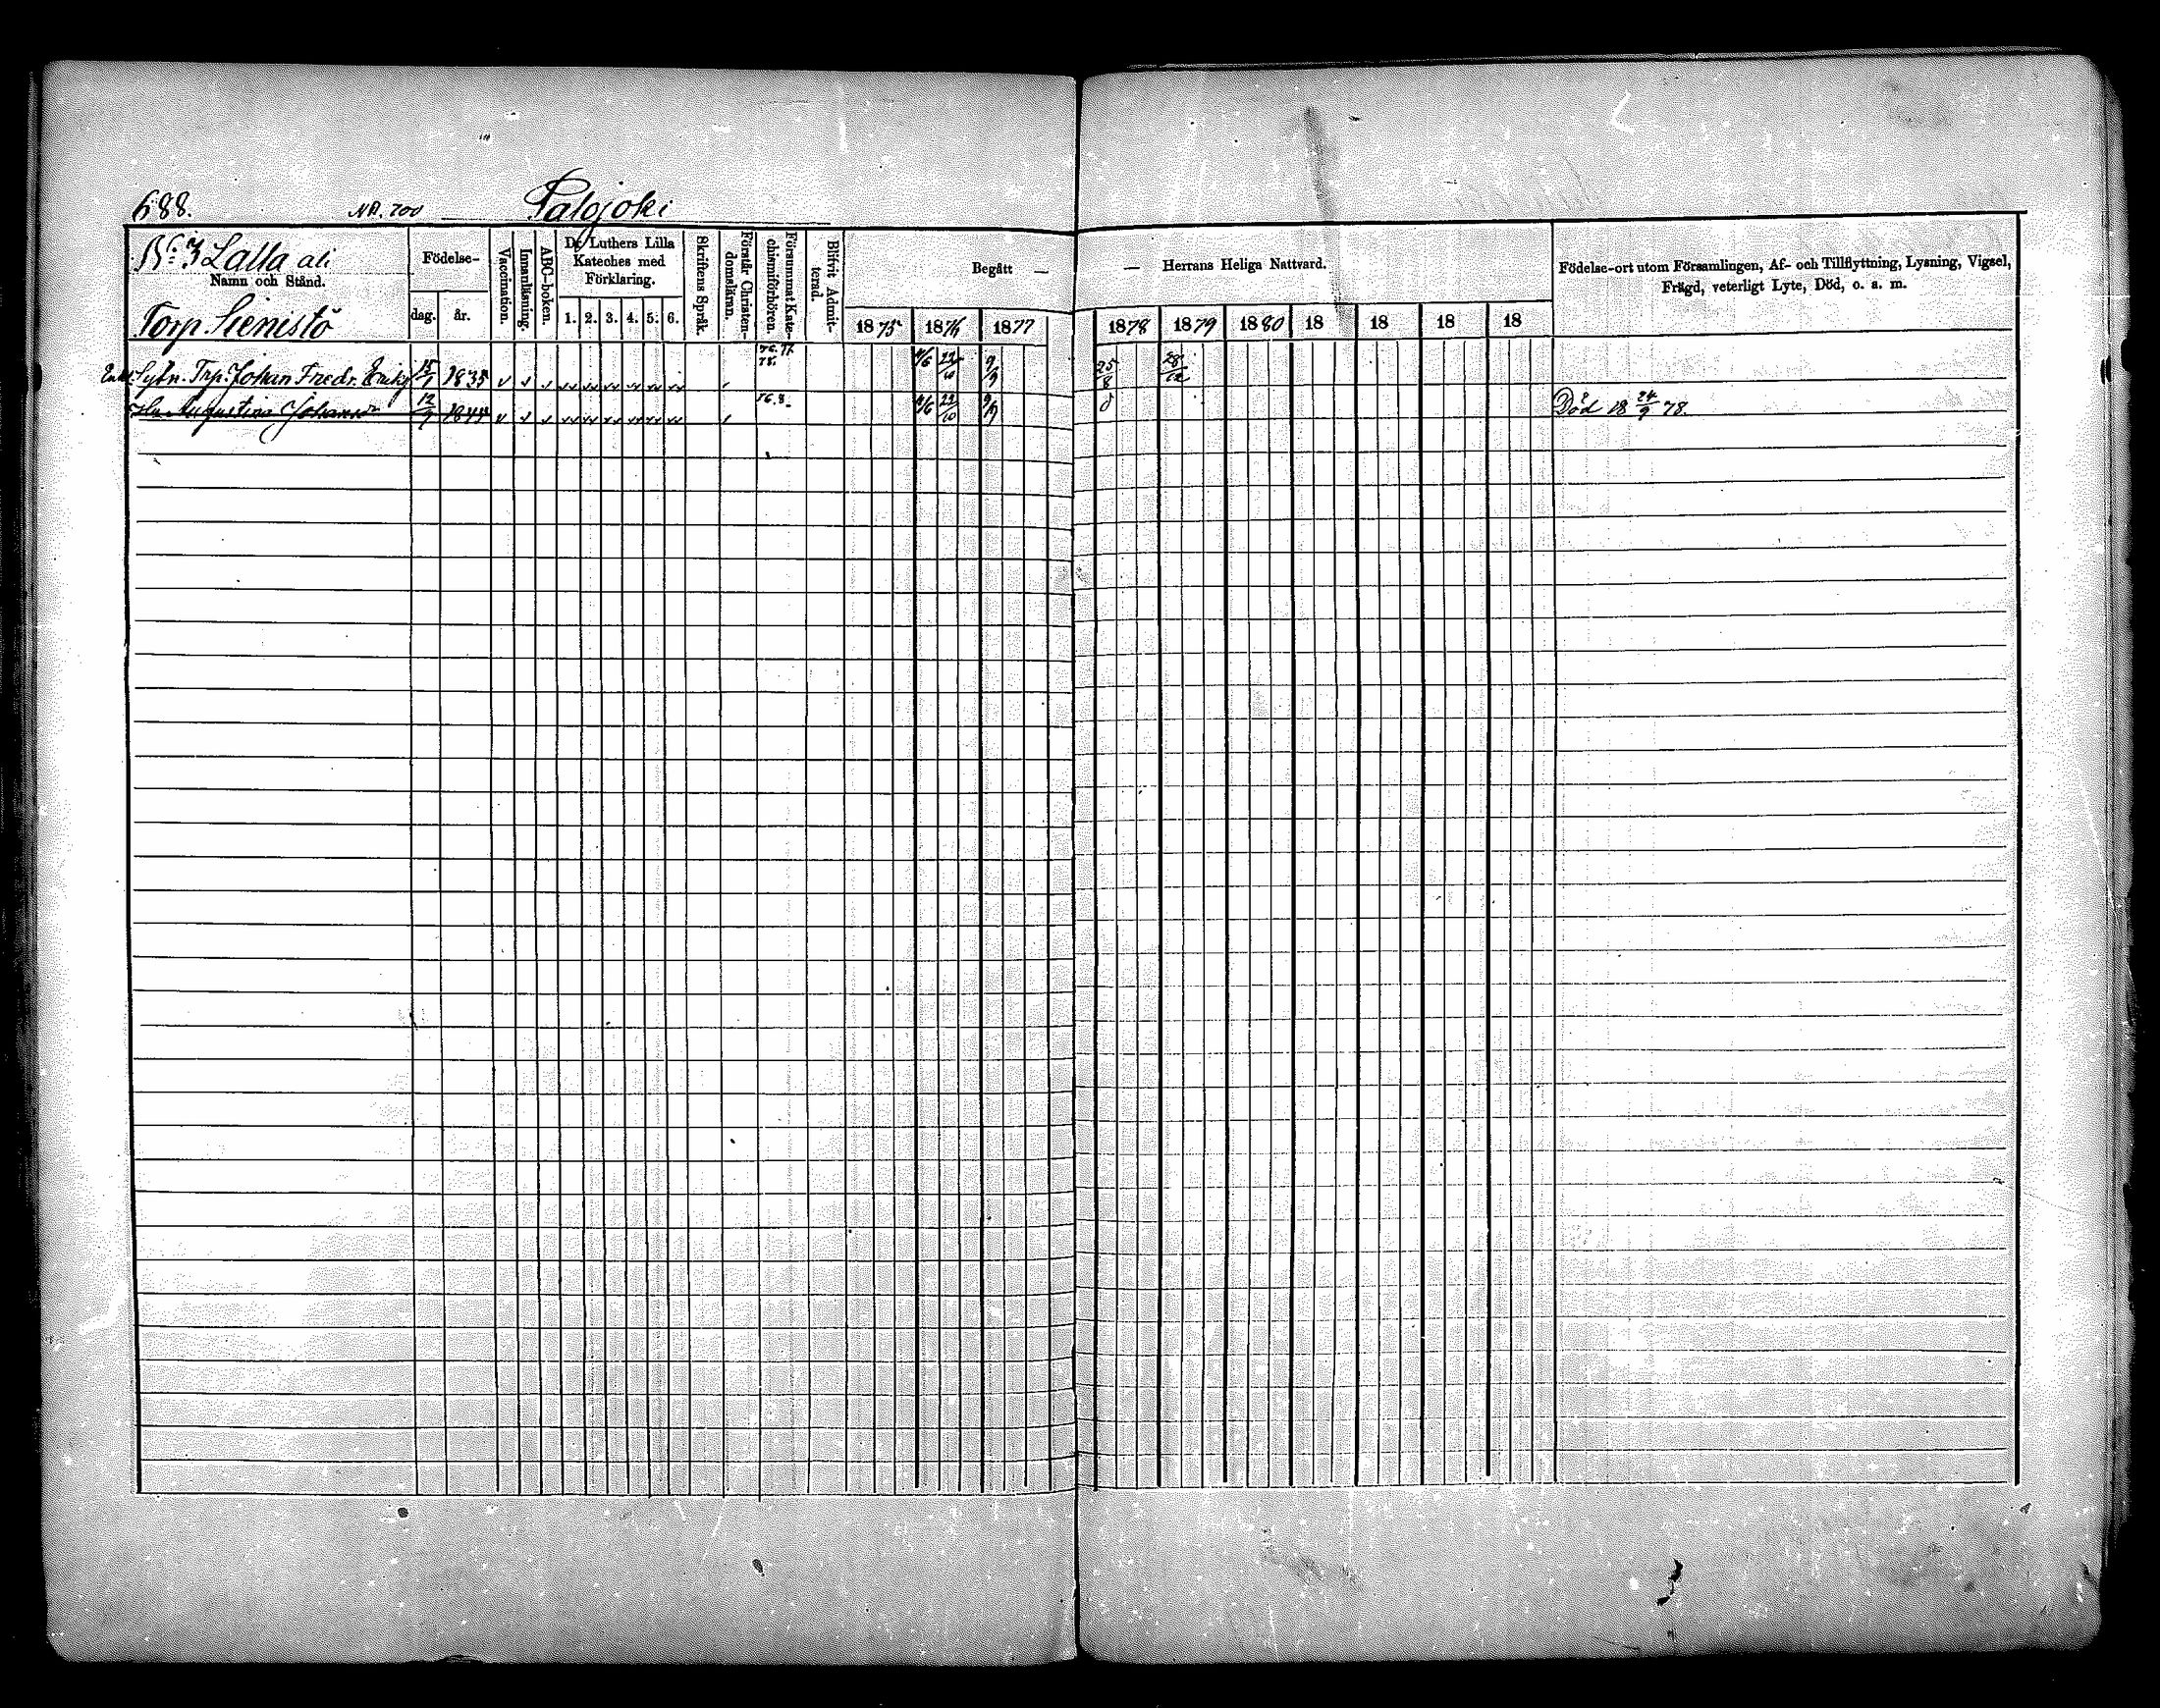 688. Palojoki
N:o 3 Lalla ali
Namn och Stånd.
Torp Sienistö
Födelse-
dag. år.
Vaccination.
Innanläsning.
ABC-boken.
Dr Luthers Lilla
Kateches med
Förklaring.
1. 2. 3. 4. 5. 6.
Skriftens Språk.
Förstår Christen-
domsläran.
Försummat Kate-
chismiförhören.
Blifvit Admit-
terad.
Begått —
1875 1876 1877
— Herrans Heliga Nattvard.
1878 1879 1880 18 18 18 18
Födelse-ort utom Församlingen, Af- och Tillflyttning, Lysning, Vigsel,
Frägd, veterligt Lyte, Död, o. a. m.
Trp. Johan Fredr. 15/1 1835 76. 77. 78. 4/6 22/10 9/9 25/8 28/12
Hu Augustina 12/9 1844 4/6 22/10 9/9 Död 18 24/9 78.